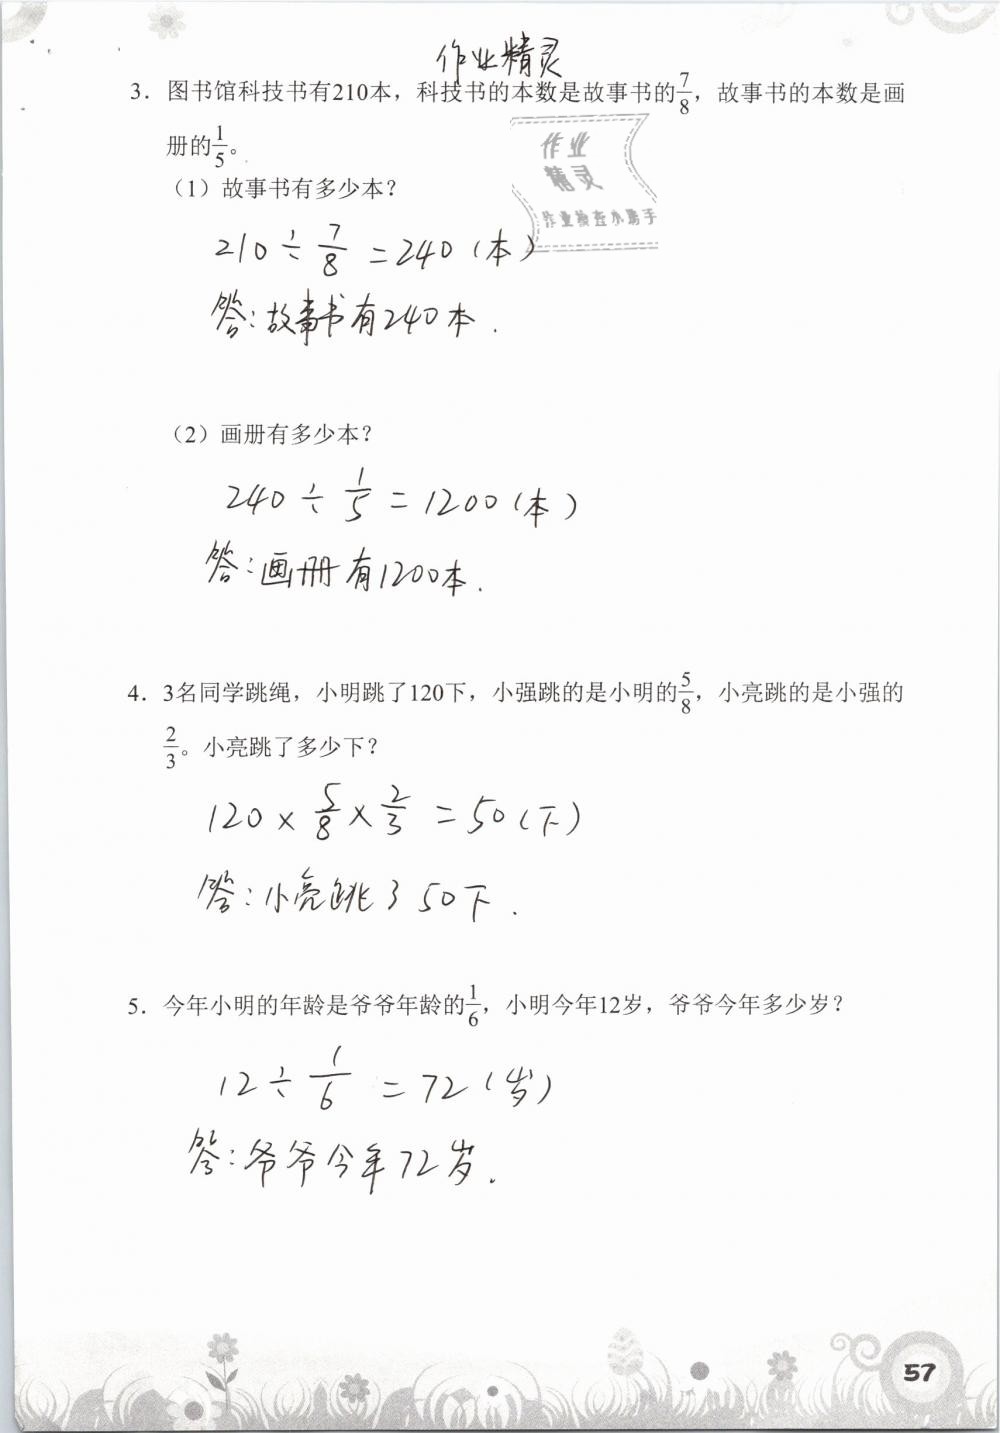 作业精灵
3. 图书馆科技书有210本，科技书的本数是故事书的7/8，故事书的本数是画
册的1/5。
作业
精灵
作业检查小助手
（1）故事书有多少本？
210÷7/8=240（本）
答：故事书有240本.
（2）画册有多少本？
240÷1/5=1200（本）
答：画册有1200本.
4. 3名同学跳绳，小明跳了120下，小强跳的是小明的5/8，小亮跳的是小强的
2/3。小亮跳了多少下？
120×5/8×2/3=50（下）
答：小亮跳了50下.
5. 今年小明的年龄是爷爷年龄的1/6，小明今年12岁，爷爷今年多少岁？
12÷1/6=72（岁）
答：爷爷今年72岁.
57